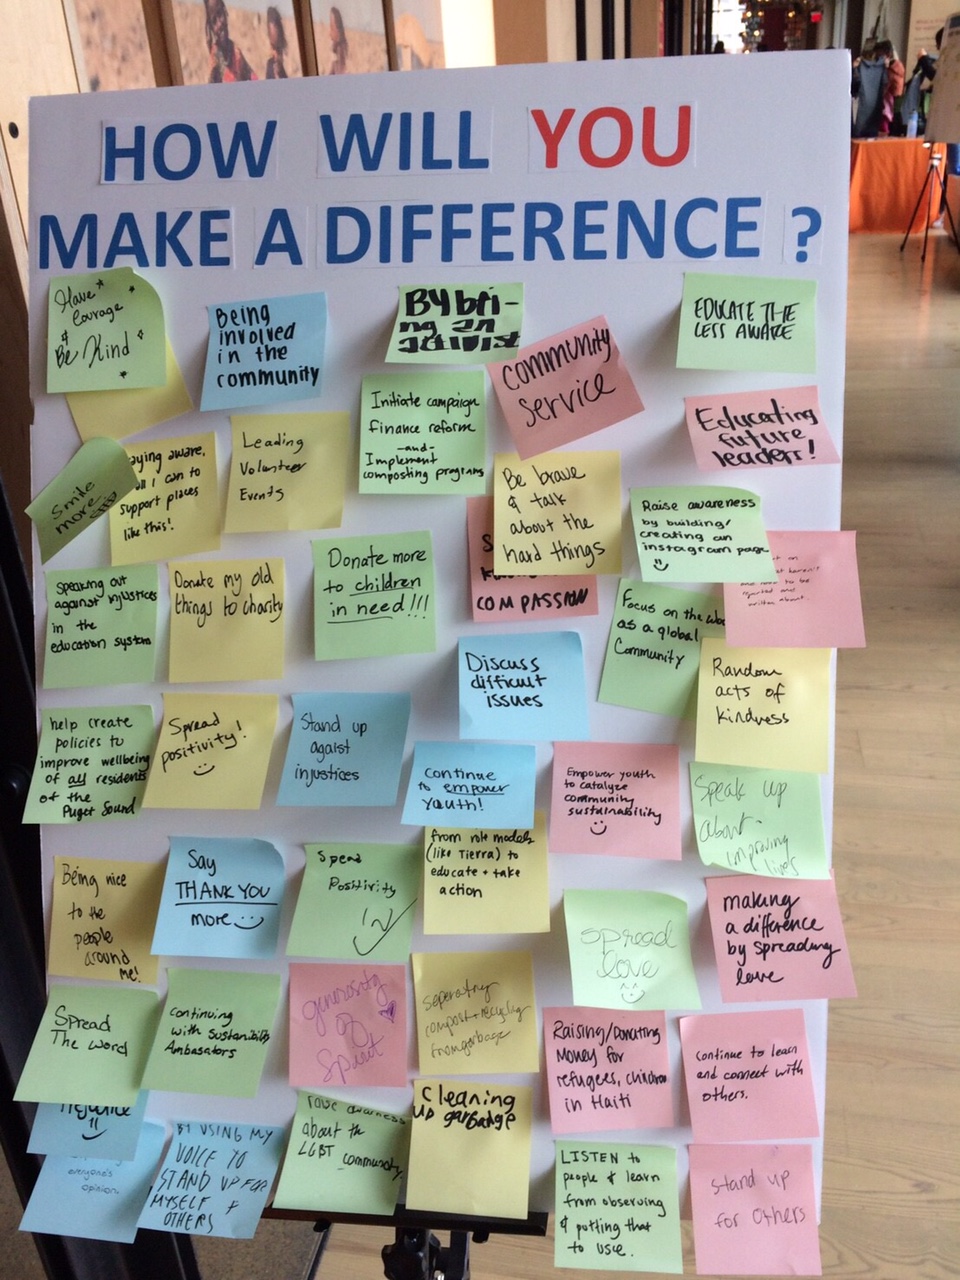 HOW WILL YOU
MAKE A DIFFERENCE ?
Have
courage
&
Be Kind
Being
involved
in the
community
By bei-
ng an
activist
community
service
EDUCATE THE
LESS AWARE
Initiate campaign
finance reform
-and-
Implement
composting programs
Educating
future
leaders!
Smile
more
aying aware,
all I can to
support places
like this!
Leading
Volunteer
Events
Be brave
& talk
about the
hard things
COMPASSION
Raise awareness
by building/
creating an
instagram page
Speaking out
against injustices
in the
education system
Donate my old
things to charity
Donate more
to children
in need!!!
Focus on the
as a global
Community
Discuss
difficult
issues
Random
acts of
kindness
help create
policies to
improve wellbeing
of all residents
of the
Puget Sound
Spread
positivity!
Stand up
against
injustices
continue
to empower
youth!
Empower youth
to catalyze
community
sustainability
Speak up
about
improving
lives
Being nice
to the
people
around
me!
Say
THANK YOU
more
Spead
Positivity
from role models
(like Tierra) to
educate + take
action
spread
love
making
a difference
by spreading
love
Spread
The word
continuing
with Sustainability
Ambasators
Generosity
of
Spirit
seperating
compost + recycling
from garbage
Raising/Donating
Money for
refugees, children
in Haiti
continue to learn
and connect with
others.
everyone's
opinion.
BY USING MY
VOICE TO
STAND UP FOR
MYSELF +
OTHERS
raise awareness
about the
LGBT community
Cleaning
up garbadge
LISTEN to
people & learn
from observing
& putting that
to use.
stand up
for others